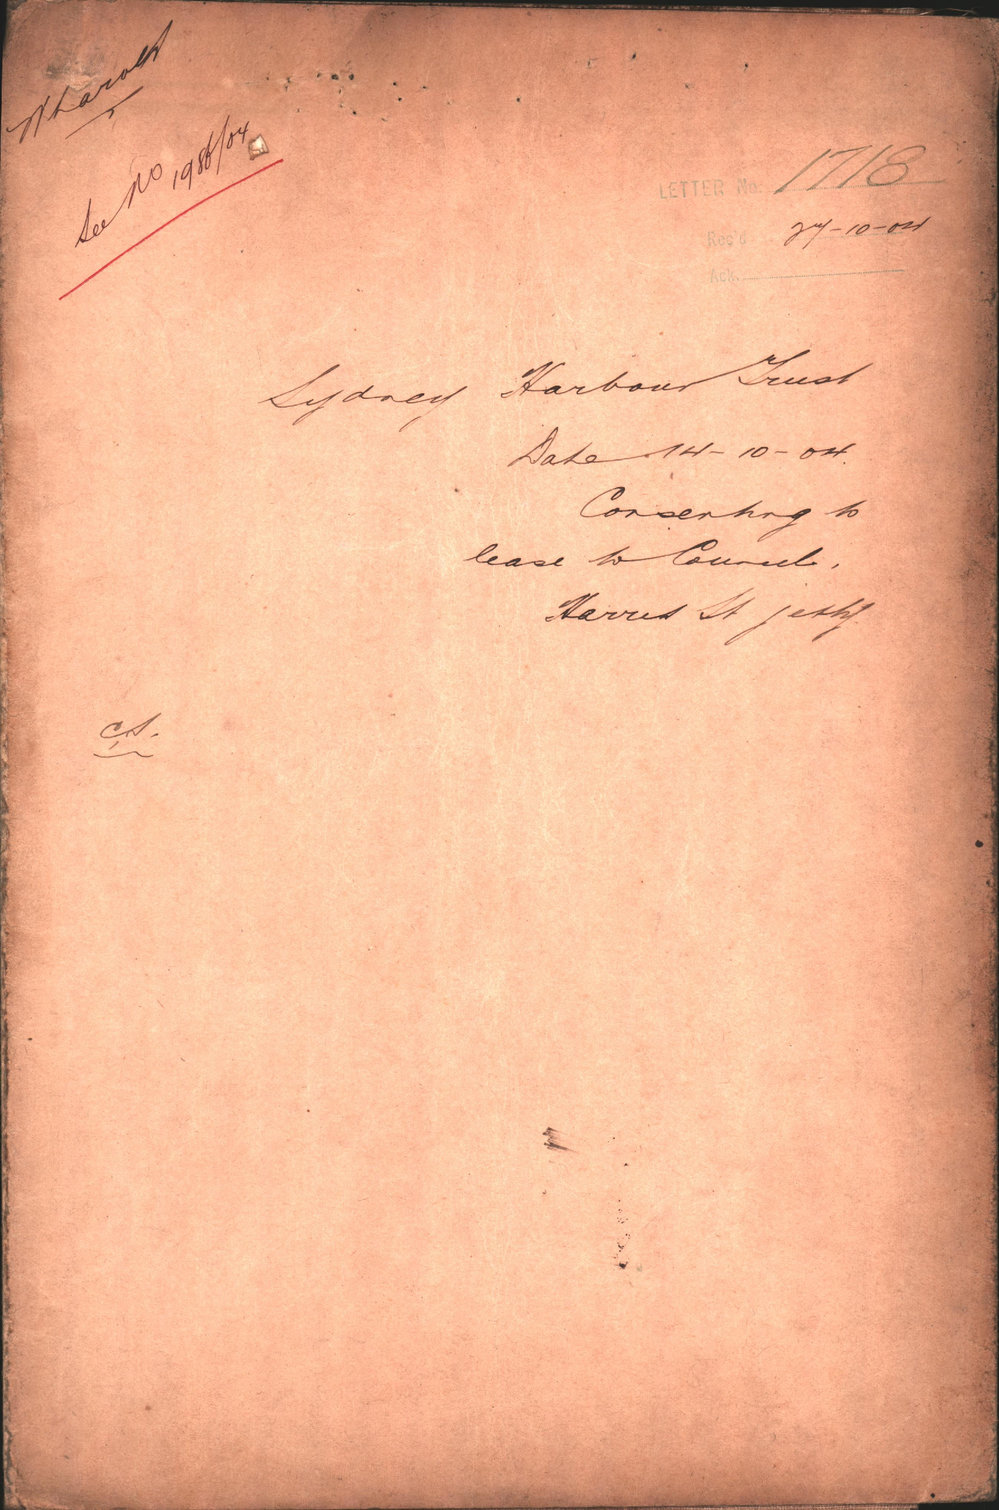 See No 1986/04
LETTER No. 1718
Rec'd 27-10-04
Ack.
Sydney Harbour Trust
Date 14-10-04.
Consenting to
lease to Council.
Harris St jetty
C.S.